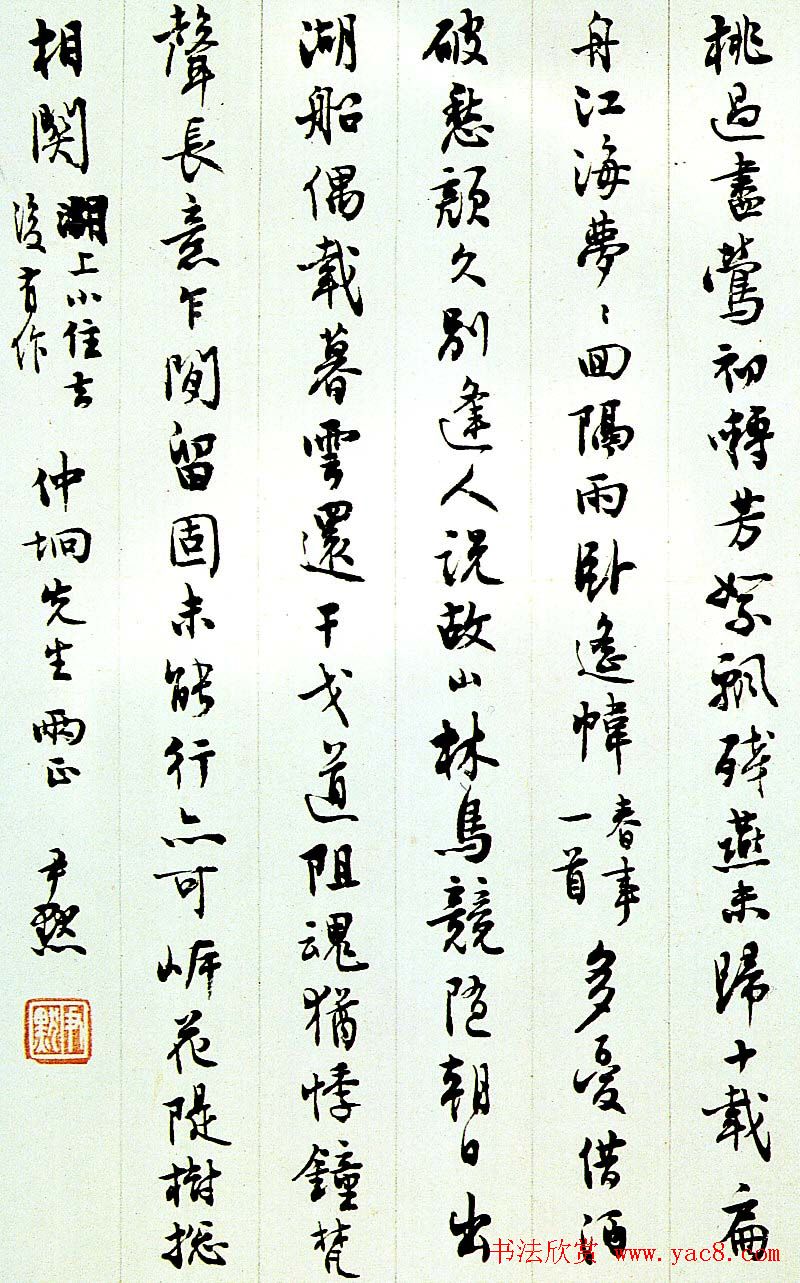 桃過盡鶯初囀芳絮飄殘燕未歸十載扁
舟江海夢〻回隔雨卧遙幃春事一首多憂借酒
破愁顏久別逢人説故山林鳥競隨朝日出
湖船偶載暮雲還干戈道阻魂猶悸鐘梵
聲長意乍閒留固未能行亦可岸花隄樹捴
相関湖上小住去後有作
仲坰先生兩正
尹默
尹默
书法欣赏 www.yac8.com